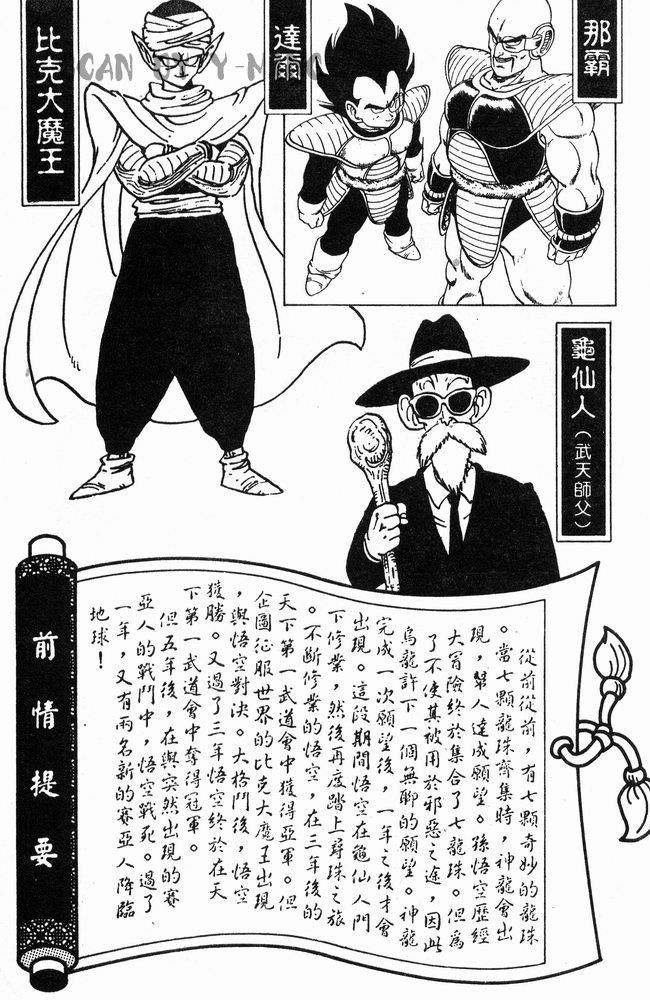 那霸
達爾
比克大魔王
CAN
龜仙人（武天師父）
前情提要
從前從前，有七顆奇妙的龍珠
。當七顆龍珠齊集時，神龍會出
現，幫人達成願望。孫悟空歷經
大冒險終於集合了七龍珠。但為
了不使其被用於邪惡之途，因此
烏龍許下一個無聊的願望。神龍
完成一次願望後，一年之後才會
出現。這段期間悟空在龜仙人門
下修業，然後再度踏上尋珠之旅
。不斷修業的悟空，在三年後的
天下第一武道會中獲得亞軍。但
企圖征服世界的比克大魔王出現
，與悟空對決。大格鬥後，悟空
獲勝。又過了三年悟空終於在天
下第一武道會中奪得冠軍。
但五年後，在與突然出現的賽
亞人的戰鬥中，悟空戰死。過了
一年，又有兩名新的賽亞人降臨
地球！